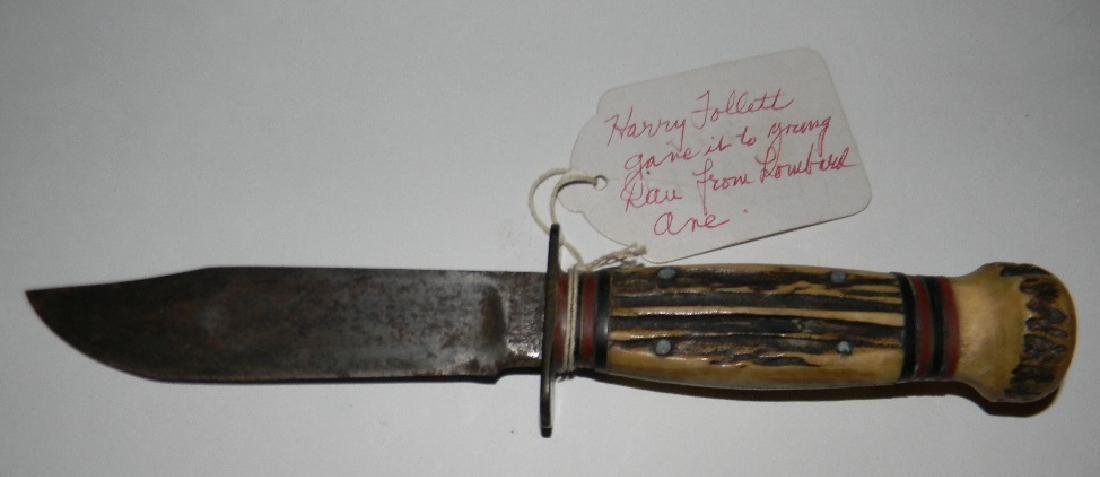 Harry Follett
gave it to young
from Lombard
Ave.